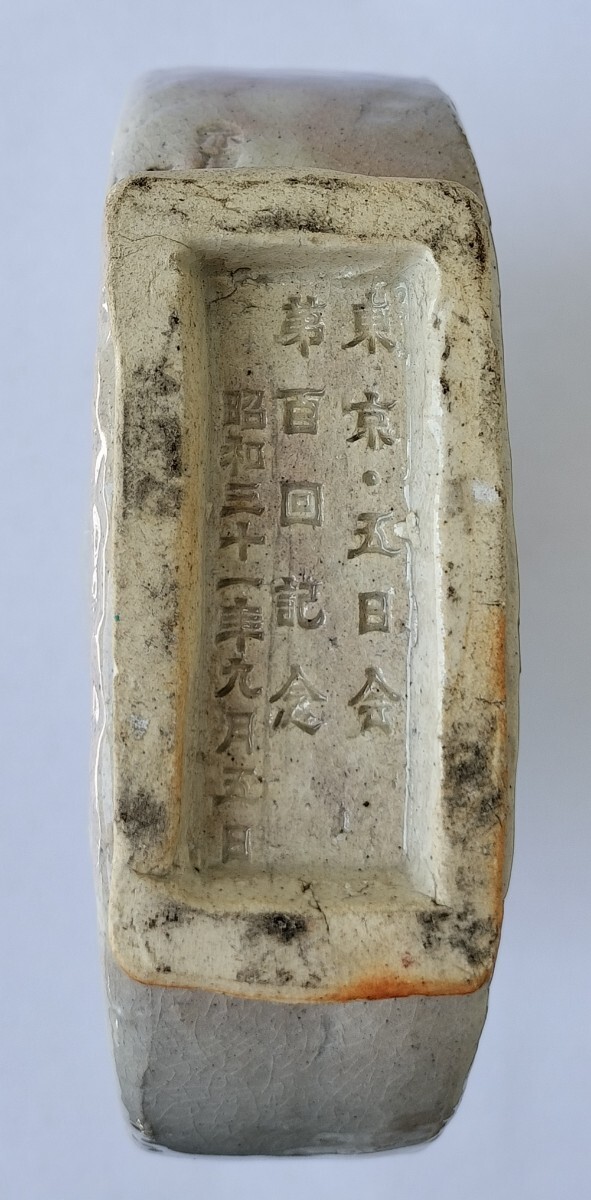 東京・五日会
第百回記念
昭和三十一年九月五日